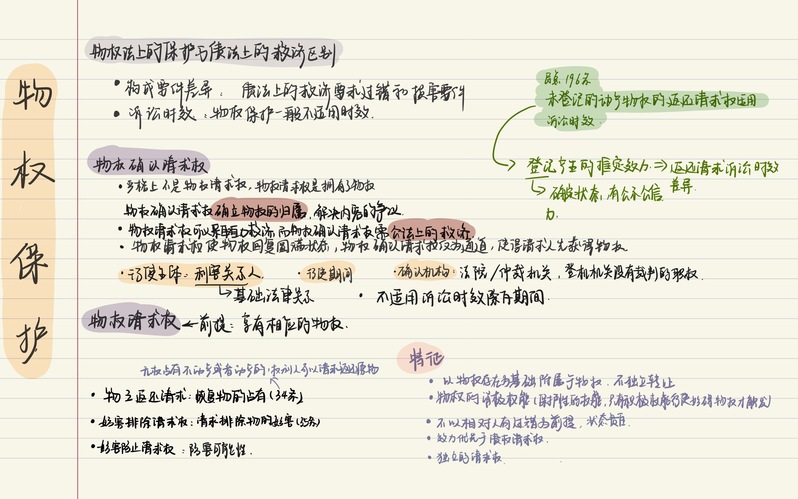 物权保护
物权法上的保护与债法上的救济区别
• 构成要件差异：债法上的救济要求过错和损害要件
• 诉讼时效：物权保护一般不适用时效.
总则 196条
未登记的动产物权的返还请求权适用
诉讼时效
登记与否的推定效力 ⇒ 返还请求诉讼时效
差异.
确权状态,有公示公信
力.
物权确认请求权
• 严格上不是物权请求权,物权请求权是拥有了物权
物权确认请求权确立物权的归属,解决内容的争议.
• 物权请求权可以采用自力救济而物权确认请求权需公法上的救济
• 物权请求使物权回复圆满状态,物权确认请求权仅为通道,使得请求人先获得物权.
• 行使主体：利害关系人 • 行使期间 • 确认机构：法院/仲裁机关,登机机关没有裁判的职权.
基础法律关系 • 不适用诉讼时效除斥期间.
物权请求权 ← 前提：享有相应的物权.
无权占有不动产或者动产的,权利人可以请求返还原物
• 物之返还请求：恢复物的占有(34条)
• 妨害排除请求权：请求排除物的妨害(35条)
• 妨害防止请求权：妨害可能性.
特征
• 以物权存在为基础附属于物权,不独立转让
• 不以相对人有过错为前提,状态责任
• 效力优先于债权请求权.
• 独立的请求权.